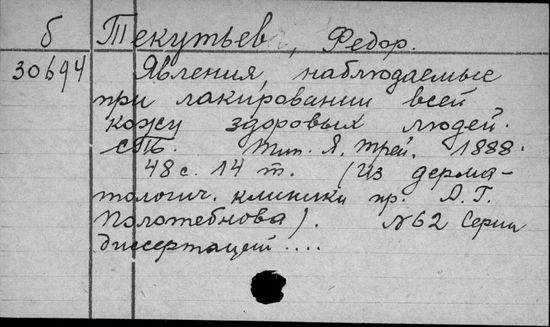 б Текутьев, Федор.
30694 Явления, наблюдаемые
при лакировании всей
кожи здоровых людей.
СПб. Тип. Я. Трей. 1888.
48 с. 14 т. (Из дерма-
тологич. клиники пр. А. Г.
Полотебнова). №62 Серии
диссертаций....